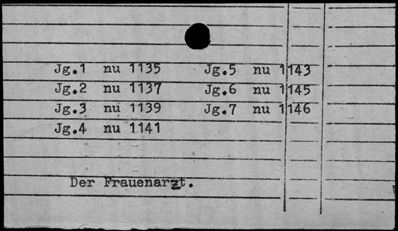 Jg.1 nu 1135 Jg.5 nu 1143
Jg.2 nu 1137 Jg.6 nu 1145
Jg.3 nu 1139 Jg.7 nu 1146
Jg.4 nu 1141
Der Frauenarzt.